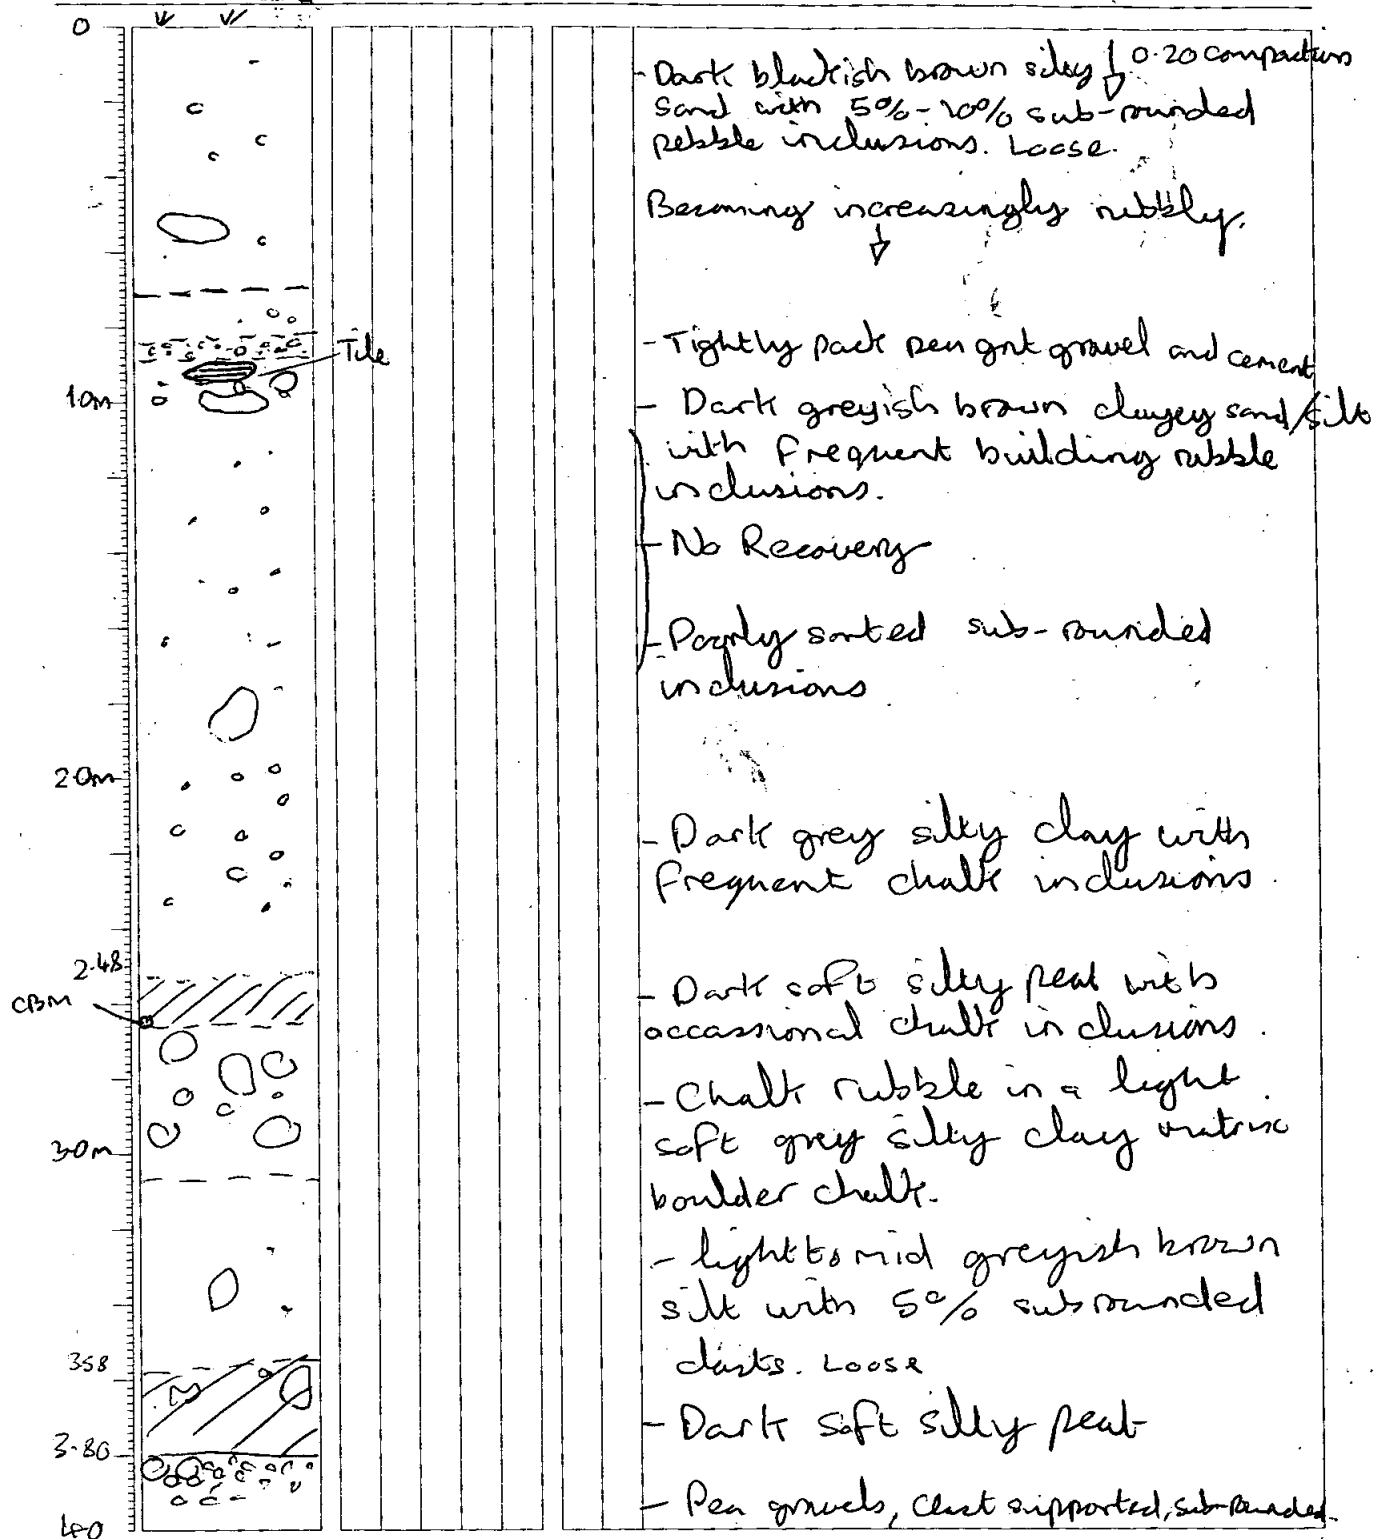 0
Dark blackish brown silty ↓ 0.20 compactions
sand with 5%-10% sub-rounded
pebble inclusions. Loose.
Becoming increasingly rubbly.
↓
- Tightly pack pea grit gravel and cement
Tile
1.0m
- Dark greyish brown clayey sand/silt
with frequent building rubble
inclusions.
- No Recovery
- Poorly sorted sub-rounded
inclusions
2.0m
- Dark grey silty clay with
frequent chalk inclusions.
2.48
- Dark soft silty peat with
CBM
accassional chalk inclusions.
- Chalk rubble in a light
soft grey silty clay matrix
3.0m
boulder chalk.
- light to mid greyish brown
silt with 5% subrounded
3.58
clasts. Loose
- Dark soft silty peat
3.80
- Pea gravels, Clast supported, sub-rounded.
4.0